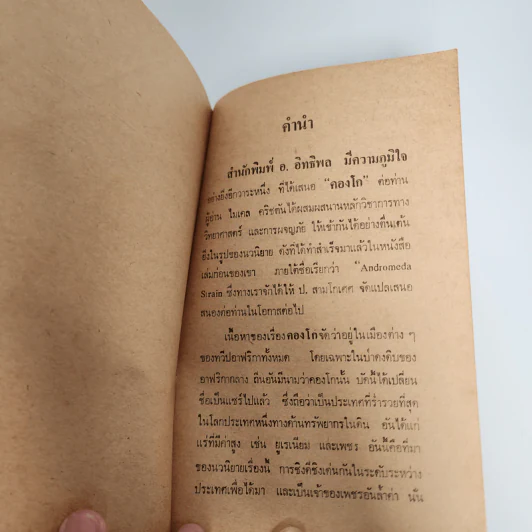 คำนำ
สำนักพิมพ์ อ. อิทธิพล มีความภูมิใจ
อย่างยิ่งอีกวาระหนึ่ง ที่ได้เสนอ "คองโก" ต่อท่าน
ผู้อ่าน ไมเคล คริชตันได้ผสมผสานหลักวิชาการทาง
วิทยาศาสตร์ และการผจญภัย ให้เข้ากันได้อย่างตื่นเต้น
ยิ่งในรูปของนวนิยาย ดังที่ได้ทำสำเร็จมาแล้วในหนังสือ
เล่มก่อนของเขา ภายใต้ชื่อเรียกว่า "Andromeda
Strain ซึ่งทางเราจักได้ให้ ป. สามโกเศศ จัดแปลเสนอ
สนองต่อท่านในโอกาสต่อไป
เนื้อหาของเรื่องคองโกจัดว่าอยู่ในเมืองต่าง ๆ
ของทวีปอาฟริกาทั้งหมด โดยเฉพาะในป่าดงดิบของ
อาฟริกากลาง ถิ่นอันมีนามว่าคองโกนั้น บัดนี้ได้เปลี่ยน
ชื่อเป็นแซร์ไปแล้ว ซึ่งถือว่าเป็นประเทศที่ร่ำรวยที่สุด
ในโลกประเทศหนึ่งทางด้านทรัพยากรในดิน อันได้แก่
แร่ที่มีค่าสูง เช่น ยูเรเนียม และเพชร อันนี้คือที่มา
ของนวนิยายเรื่องนี้ การชิงดีชิงเด่นกันในระดับระหว่าง
ประเทศเพื่อได้มา และเป็นเจ้าของเพชรอันล้ำค่า นั้น